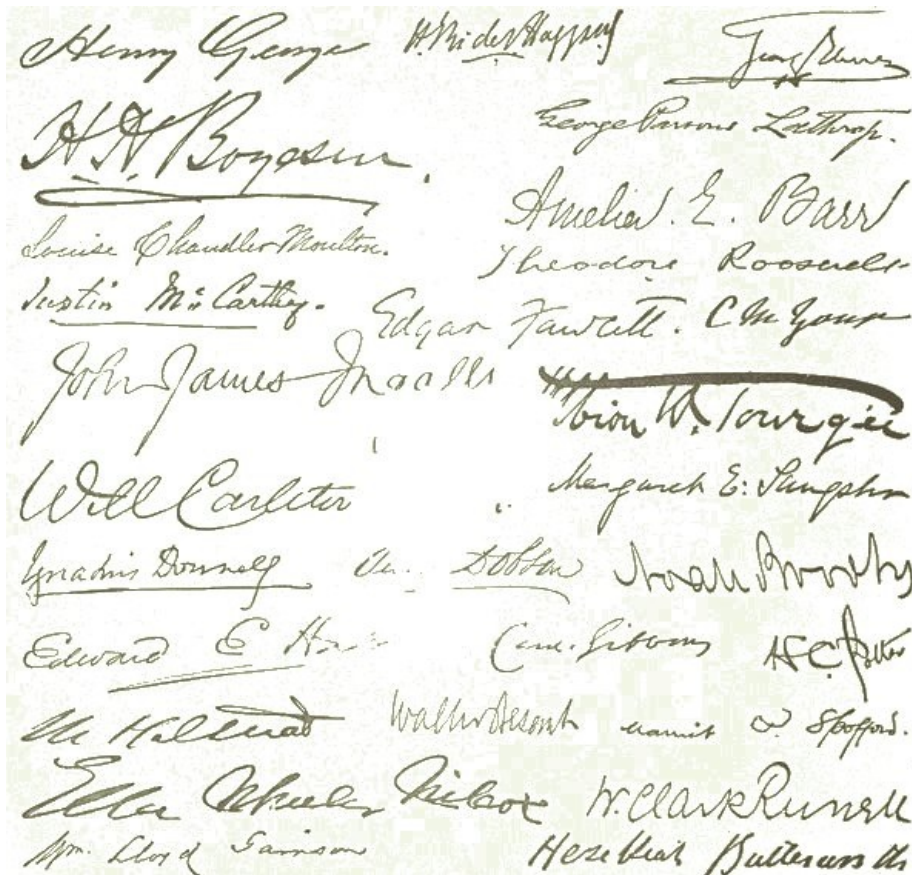 Henry George
H. Rider Haggard
H. H. Boyesen.
George Parsons Lathrop.
Amelia E. Barr
Louise Chandler Moulton.
Theodore Roosevelt
Justin McCarthy.
Edgar Fawcett.
C M Yonge
John James Ingalls
Albion W. Tourgée
Will Carleton
Margaret E. Sangster
Ignatius Donnelly
Dobson
Noah Brooks
Edward E Hale
Card. Gibbons
H C Potter
M Halstead
Walter Besant
Harriet P. Spofford.
Ella Wheeler Wilcox
W. Clark Russell
Wm. Lloyd Garrison
Hezekiah Butterworth